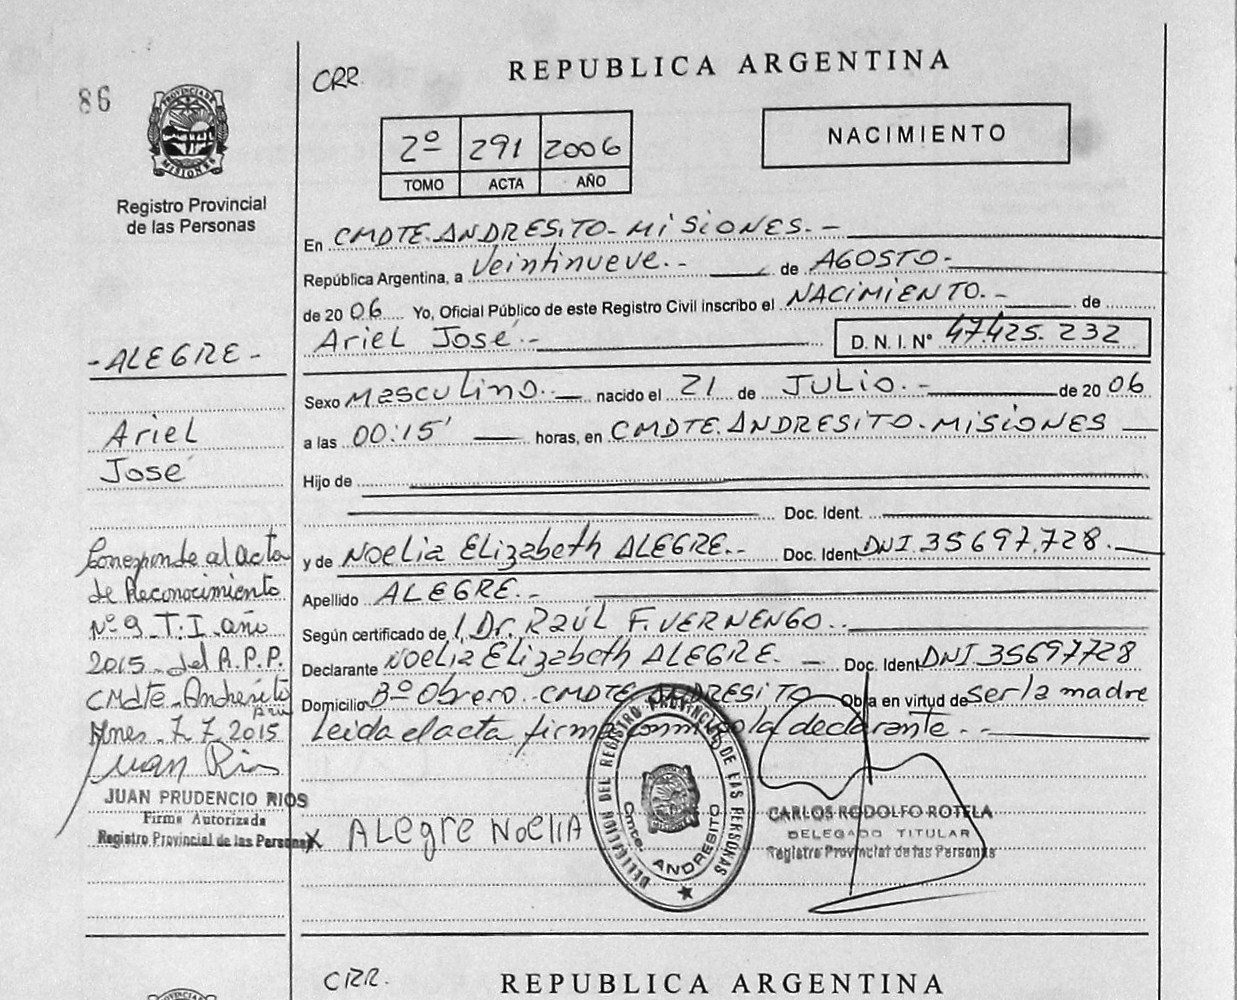 86
PROVINCIA DE MISIONES
Registro Provincial
de las Personas
CRR.
REPUBLICA ARGENTINA
2º 291 2006
TOMO ACTA AÑO
NACIMIENTO
En CMDTE. ANDRESITO - MISIONES. -
República Argentina, a Veintinueve. - de AGOSTO -
de 20 06 Yo, Oficial Público de este Registro Civil inscribo el NACIMIENTO. - de
Ariel José. - D. N. I. Nº 47.425.232
Sexo Masculino. - nacido el 21 de JULIO. - de 20 06
a las 00:15' horas, en CMDTE. ANDRESITO. MISIONES
Hijo de
Doc. Ident.
y de Noelia Elizabeth ALEGRE. - Doc. Ident. DNI. 35697.728. -
Apellido ALEGRE. -
Según certificado de Dr. RAÚL F. VERNENGO. -
Declarante Noelia Elizabeth ALEGRE. - Doc. Ident. DNI 35697728
Domicilio Bº Obrero. CMDTE. ANDRESITO Obra en virtud de ser la madre
Leida el acta firma la declarante. -
- ALEGRE -
Ariel
José
Corresponde al acta
de Reconocimiento
Nº 9 - T. I - año
2015 - del R.P.P.
CMdte - Andresito
Mnes - 7.7.2015
Juan Rios
JUAN PRUDENCIO RIOS
Firma Autorizada
Registro Provincial de las Personas
X ALEgre NoELIA
DELEGACION DEL REGISTRO PROVINCIAL DE LAS PERSONAS
Cmte. ANDRESITO
CARLOS RODOLFO ROTELA
DELEGADO TITULAR
Registro Provincial de las Personas
CRR.
REPUBLICA ARGENTINA